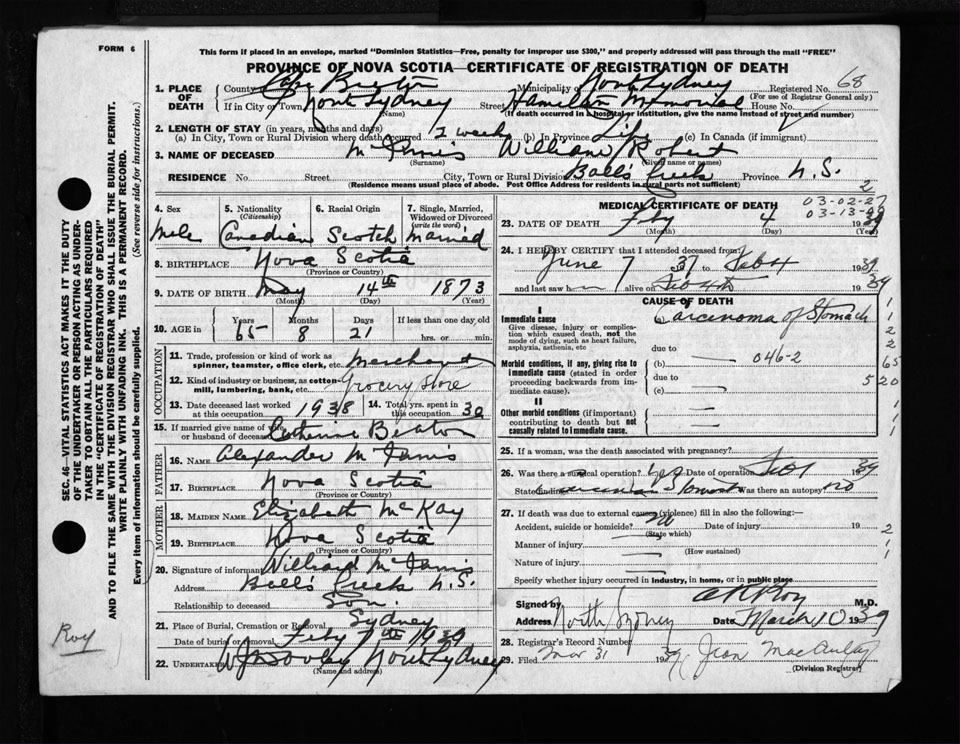 FORM 6
This form if placed in an envelope, marked "Dominion Statistics—Free, penalty for improper use $300," and properly addressed will pass through the mail "FREE"
PROVINCE OF NOVA SCOTIA—CERTIFICATE OF REGISTRATION OF DEATH
1. PLACE OF DEATH County Cape Breton Municipality North Sydney Registered No. 68
(For use of Registrar General only)
If in City or Town North Sydney Street Hamilton Memorial House No.
(Name) (If death occurred in a hospital or institution, give the name instead of street and number)
2. LENGTH OF STAY (in years, months and days)
(a) In City, Town or Rural Division where death occurred 2 weeks (b) In Province Life (c) In Canada (if immigrant)
3. NAME OF DECEASED McInnis William Robert
(Surname) (Given name or names)
RESIDENCE No. Street City, Town or Rural Division Ball's Creek Province N.S.
(Residence means usual place of abode. Post Office Address for residents in rural parts not sufficient)
2
4. Sex Male
5. Nationality (Citizenship) Canadian
6. Racial Origin Scotch
7. Single, Married, Widowed or Divorced (write the word) Married
8. BIRTHPLACE Nova Scotia
(Province or Country)
9. DATE OF BIRTH May 14th 1873
(Month) (Day) (Year)
10. AGE in Years 65 Months 8 Days 21 If less than one day old hrs. or min.
OCCUPATION
11. Trade, profession or kind of work as spinner, teamster, office clerk, etc. Merchant
12. Kind of industry or business, as cotton-mill, lumbering, bank, etc. Grocery Store
13. Date deceased last worked at this occupation 1938
14. Total yrs. spent in this occupation 30
15. If married give name of wife or husband of deceased Catherine Beaton
FATHER
16. NAME Alexander McInnis
17. BIRTHPLACE Nova Scotia
(Province or Country)
MOTHER
18. MAIDEN NAME Elizabeth McKay
19. BIRTHPLACE Nova Scotia
(Province or Country)
20. Signature of informant McInnis
Address Ball's Creek N.S.
Relationship to deceased Son.
21. Place of Burial, Cremation or Removal Sydney
Date of burial or removal Feby 7th 1939
22. Undertaker North Sydney
(Name and address)
MEDICAL CERTIFICATE OF DEATH
03-02-27
03-13-
23. DATE OF DEATH Feby 4 1939
(Month) (Day) (Year)
24. I HEREBY CERTIFY that I attended deceased from
June 7 37 to Feb 4 1939
and last saw h alive on Feb 4th 1939
CAUSE OF DEATH
I
Immediate cause Carcinoma of Stomach
Give disease, injury or complication which caused death, not the mode of dying, such as heart failure, asphyxia, asthenia, etc
due to
Morbid conditions, if any, giving rise to immediate cause (stated in order proceeding backwards from immediate cause).
(b) 046-2
due to
(c)
II
Other morbid conditions (if important) contributing to death but not causally related to immediate cause.
1
2
2
65
520
1
1
1
25. If a woman, was the death associated with pregnancy?
26. Was there a surgical operation? yes Date of operation 1939
State findings Stomach Was there an autopsy? no
27. If death was due to external causes (violence) fill in also the following:—
Accident, suicide or homicide? no Date of injury 19
(State which)
2
Manner of injury
(How sustained)
1
Nature of injury
Specify whether injury occurred in industry, in home, or in public place
Signed by Roy M.D.
Address North Sydney Date March 10 1939
28. Registrar's Record Number
29. Filed Mar 31 1939 Jean MacAulay
(Division Registrar)
SEC. 46—VITAL STATISTICS ACT MAKES IT THE DUTY
OF THE UNDERTAKER OR PERSON ACTING AS UNDERTAKER TO OBTAIN ALL THE PARTICULARS REQUIRED
IN THE "CERTIFICATE OF REGISTRATION OF DEATH"
AND TO FILE THE SAME WITH THE DIVISION REGISTRAR WHO SHALL ISSUE THE BURIAL PERMIT.
WRITE PLAINLY WITH UNFADING INK. THIS IS A PERMANENT RECORD.
Every item of information should be carefully supplied. (See reverse side for instructions.)
Roy